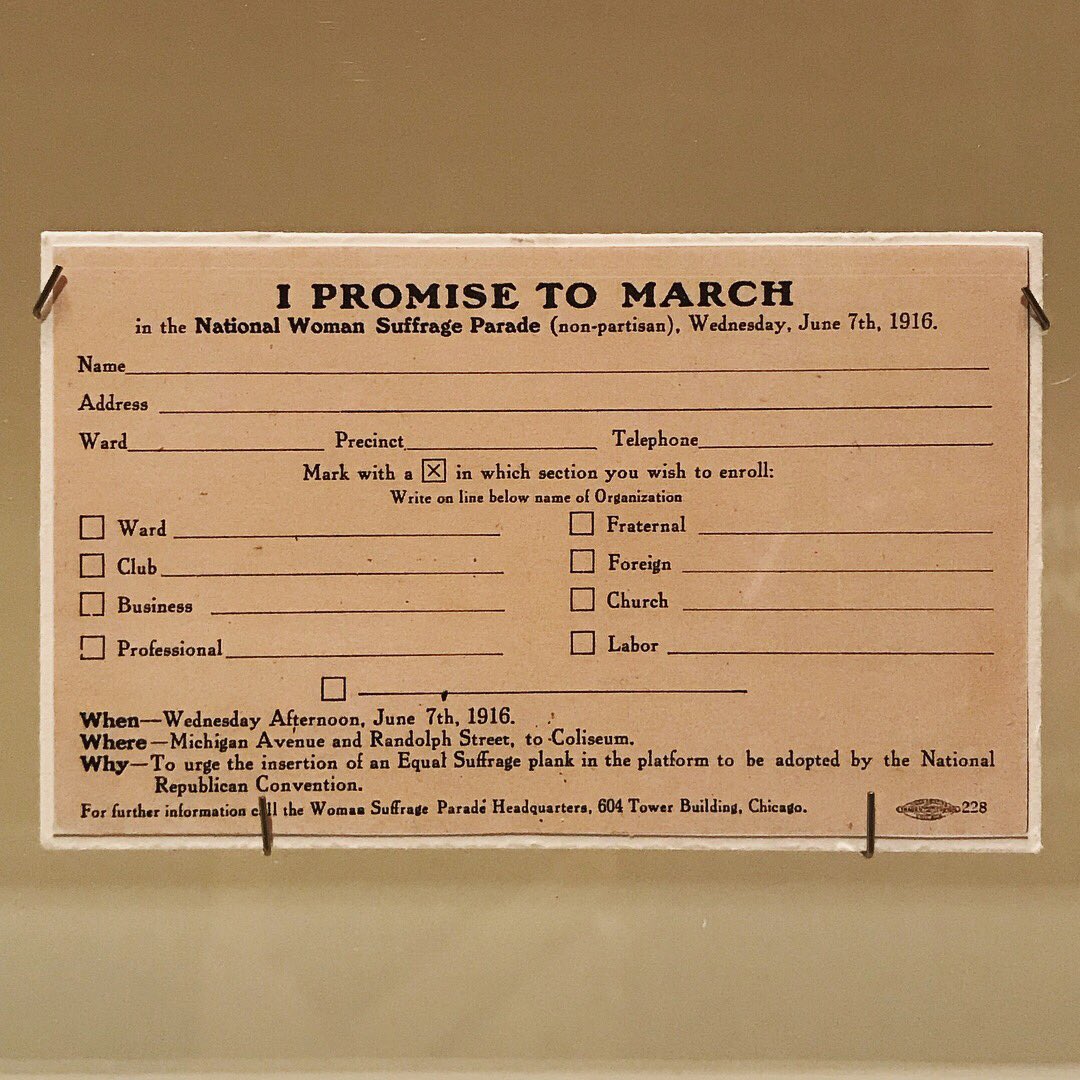 I PROMISE TO MARCH
in the National Woman Suffrage Parade (non-partisan), Wednesday, June 7th, 1916.
Name
Address
Ward Precinct Telephone
Mark with a ☒ in which section you wish to enroll:
Write on line below name of Organization
Ward Fraternal
Club Foreign
Business Church
Professional Labor
When—Wednesday Afternoon, June 7th, 1916.
Where—Michigan Avenue and Randolph Street, to Coliseum.
Why—To urge the insertion of an Equal Suffrage plank in the platform to be adopted by the National
Republican Convention.
For further information call the Woman Suffrage Parade Headquarters, 604 Tower Building, Chicago. 228